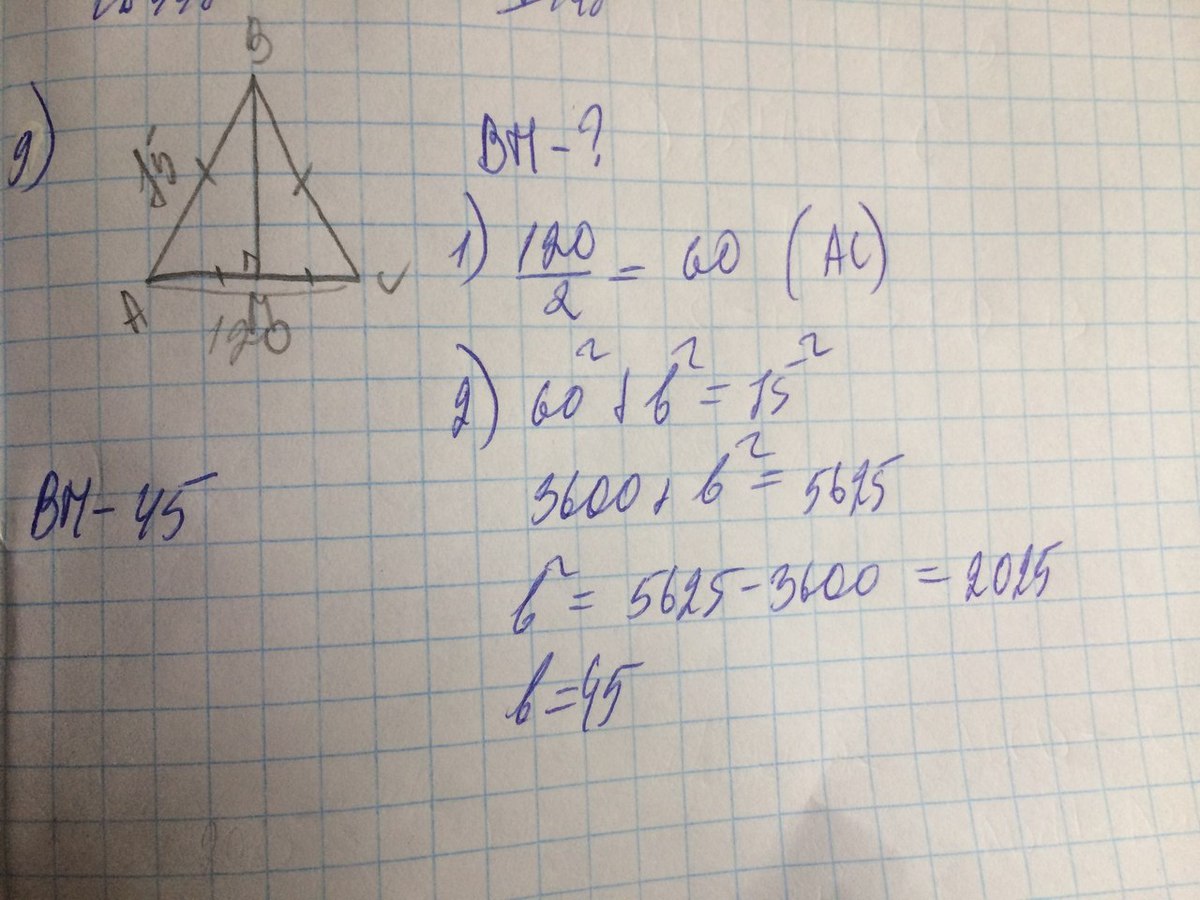 B
9)
75
A
M
C
120
BM-?
1) 120/2 = 60 (AC)
2) 60² + b² = 75²
3600 + b² = 5625
BM - 45
b² = 5625 - 3600 = 2025
b = 45